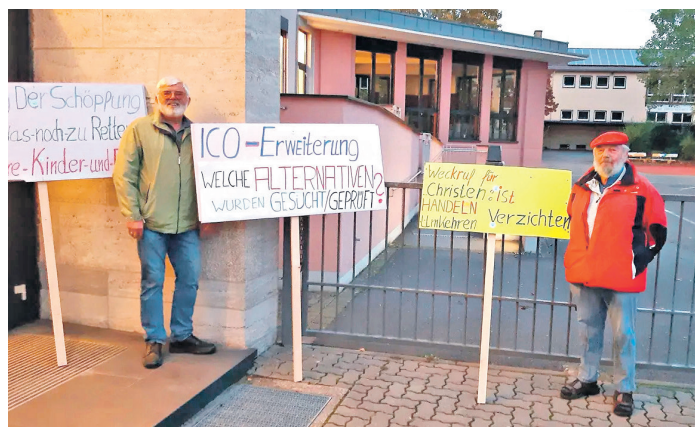 Der Schöpfung
noch zu Rette
re-Kinder-und-
ICO-Erweiterung
WELCHE ALTERNATIVEN
WURDEN GESUCHT/GEPRÜFT?
Weckruf für
Christen: Ist
HANDELN
Umkehren Verzichten